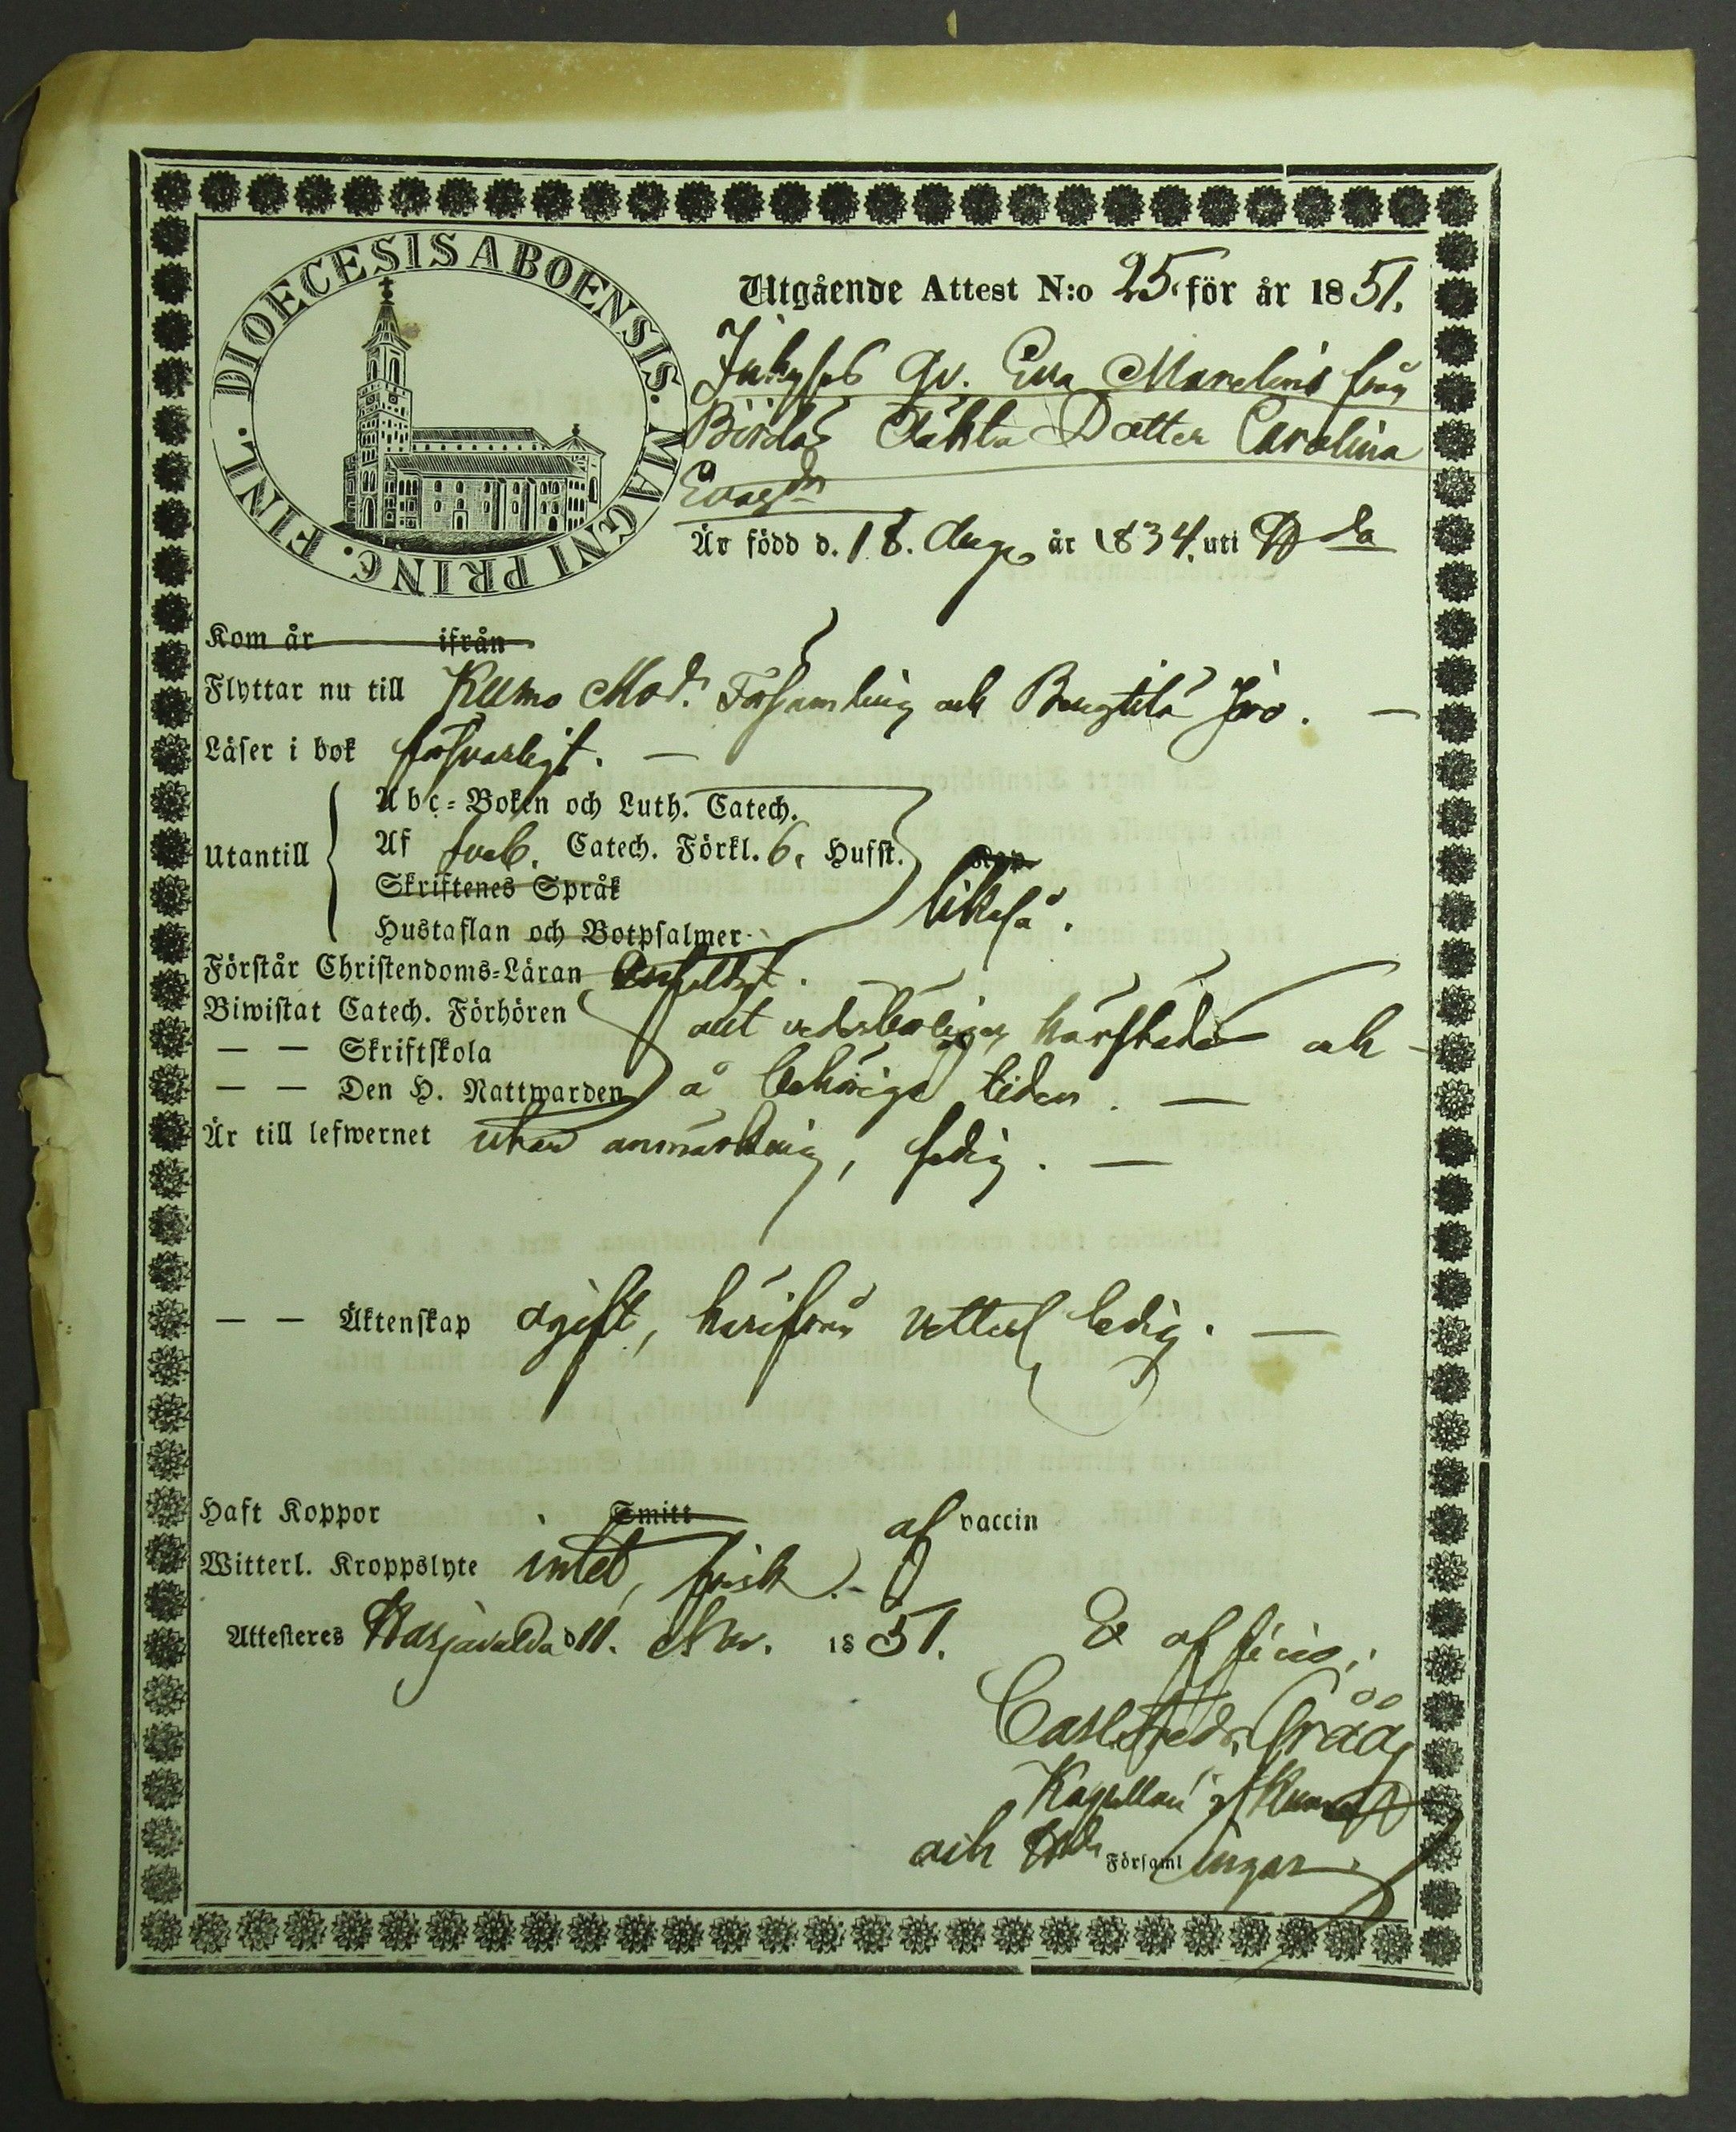 DIOECESIS ABOENSIS. MAGNI PRINC. FINL.
Utgående Attest N:o 25. för år 1851.
Qv. Eva från
Dotter Carolina
Är född d. 18. Aug. år 1834. uti H da
Kom år ifrån
Flyttar nu till Kumo Mod. Församling och
Läser i bok försvarligt. —
Utantill
Abc-Boken och Luth. Catech.
Af Catech. Förkl. 6. Husst.
Skriftenes Språk
Hustaflan och Botpsalmer
likaså.
Förstår Christendoms-Läran
Biwistat Catech. Förhören
— — Skriftskola
— — Den H. Nattwarden
allt vederbörligen härstädes och
å behöriga tider. —
Är till lefwernet utan anmärkning, —
— — Äktenskap ogift, härifrån ledig. —
Haft Koppor Smitt af vaccin
Witterl. Kroppslyte intet, frisk. –
Attesteres Harjavalda d 11. Nov. 1851.
Ex officio,
Carl Fredr.
Kapellan i Kumo
och H da Församlingar